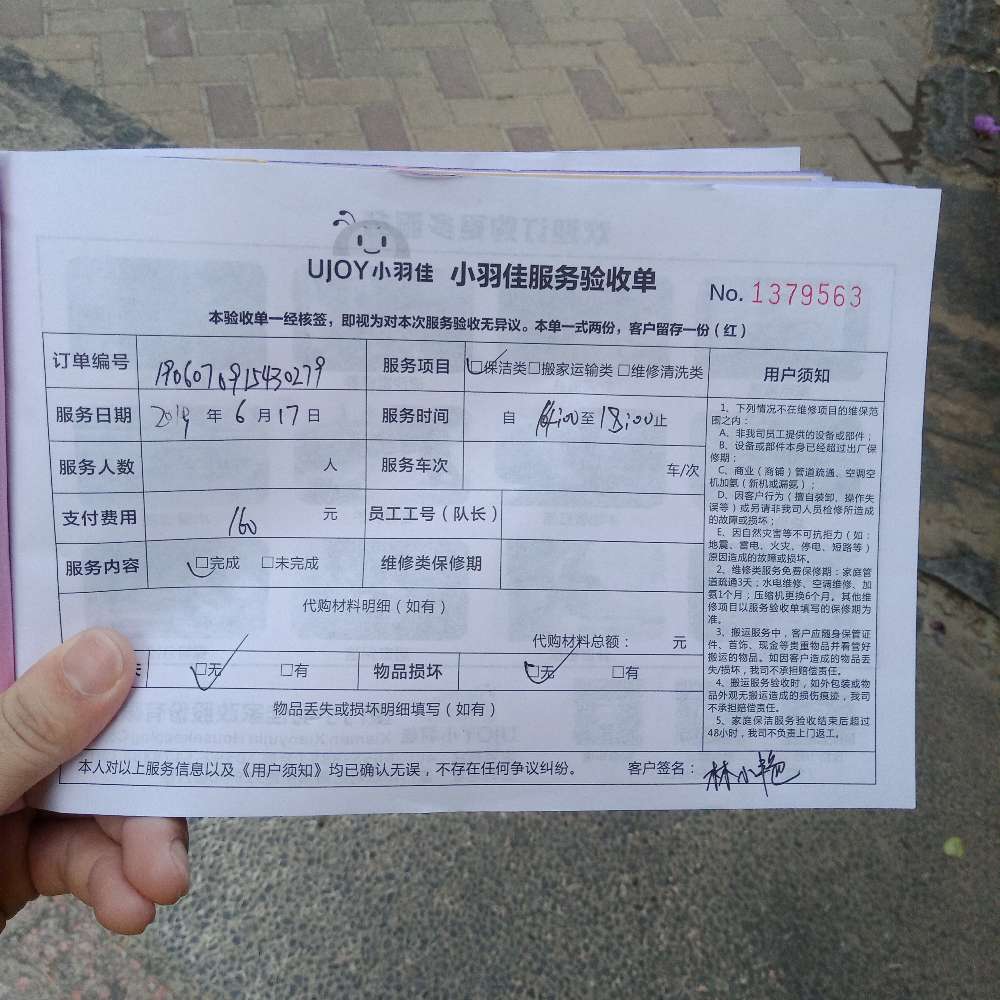 UJOY小羽佳 小羽佳服务验收单
No. 1379563
本验收单一经核签，即视为对本次服务验收无异议。本单一式两份，客户留存一份（红）
订单编号 1906070915430279 服务项目 □保洁类□搬家运输类 □维修清洗类
服务日期 2019 年 6 月 17 日 服务时间 自 14:00至18:00止
服务人数 人 服务车次 车/次
支付费用 160 元 员工工号（队长）
服务内容 □完成 □未完成 维修类保修期
代购材料明细（如有）
代购材料总额： 元
□无 □有 物品损坏 □无 □有
物品丢失或损坏明细填写（如有）
用户须知
1、下列情况不在维修项目的维保范
围之内：
A、非我司员工提供的设备或部件；
B、设备或部件本身已经超过出厂保
修期；
C、商业（商铺）管道疏通、空调空
机加氨（新机或漏氨）；
D、因客户行为（擅自装卸、操作失
误等）或另请非我司人员检修所造成
的故障或损坏；
E、因自然灾害等不可抗拒力（如：
地震、雷电、火灾、停电、短路等）
原因造成的故障或损坏。
2、维修类服务免费保修期：家庭管
道疏通3天；水电维修、空调维修、加
氨1个月；压缩机更换6个月。其他维
修项目以服务验收单填写的保修期为
准。
3、搬运服务中，客户应随身保管证
件、首饰、现金等贵重物品并看管好
搬运的物品。如因客户造成的物品丢
失/损坏，我司不承担赔偿责任。
4、搬运服务验收时，如外包装或物
品外观无搬运造成的损伤痕迹，我司
不承担赔偿责任。
5、家庭保洁服务验收结束后超过
48小时，我司不负责上门返工。
本人对以上服务信息以及《用户须知》均已确认无误，不存在任何争议纠纷。 客户签名： 林小艳